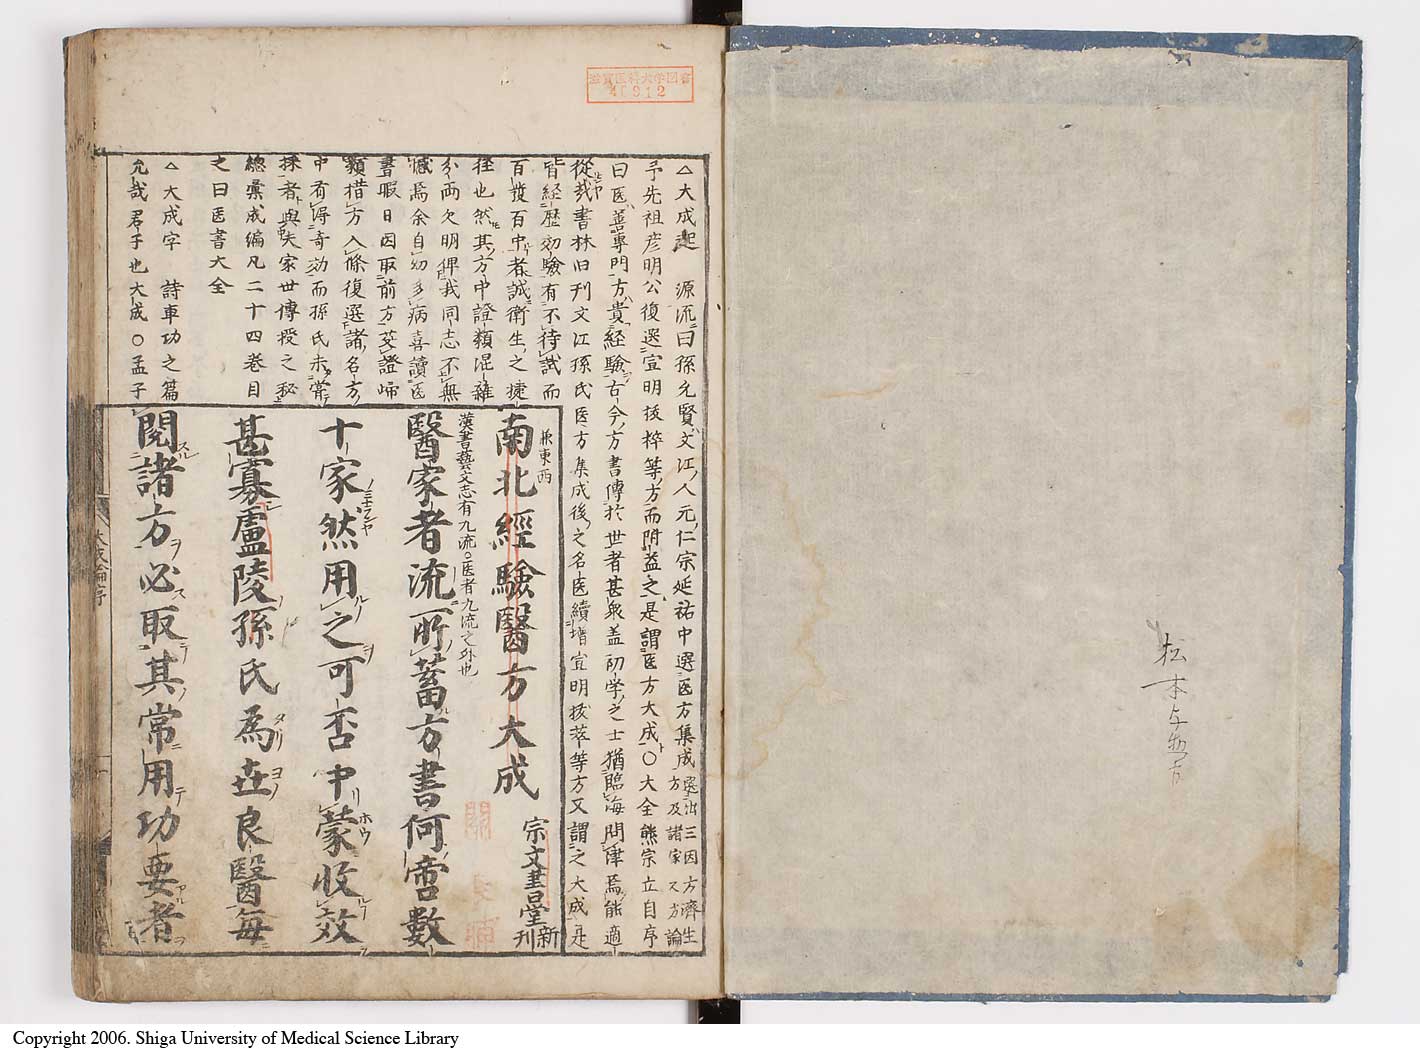 松本
滋賀医科大学図書
40912
△大成起 源流曰孫允賢文江人元仁宗延祐中選医方集成選出三因方済生方及諸家又方論
予先祖彦明公復選宣明抜粹等方而附益之是謂医方大成○大全熊宗立自序
曰医善專門方貴経驗古今方書傳於世者甚衆盖初学之士猶臨海問津焉能適
從哉書林旧刊文江孫氏医方集成後之名医續增宣明拔萃等方又謂之大成是
皆経歴効驗有不待試而
百發百中者誠衛生之捷
徑也然其方中證類混雜
分両欠明俾我同志不無
憾焉余自幼多病喜讀医
書暇日因取前方芟證歸
類措方入條復選諸名方
中有淂奇効而孫氏未嘗
採者與夫家世傳授之秘
總彙成編凡二十四巻目
之曰医書大全
△大成字 詩車功之篇
允哉君子也大成○孟子
兼東西
南北經驗醫方大成
宗文書堂新刊
漢書藝文志有九流○医者九流之外也
醫家者流所蓄方書何啻數
十家然用之可否中蒙收效
甚寡盧陵孫氏為世良醫每
閱諸方必取其常用功要者
大成論序